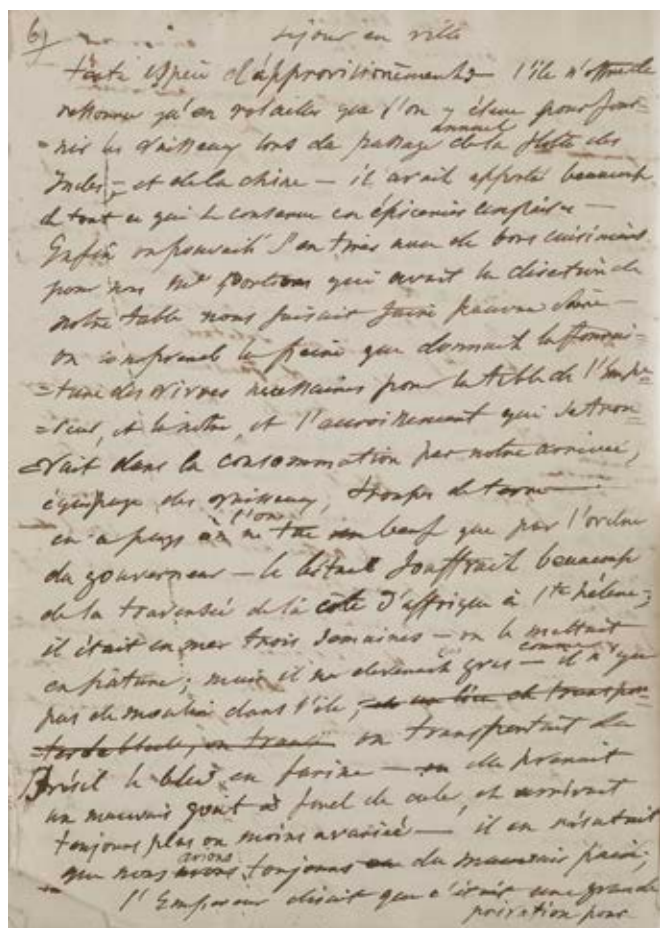 6)
séjour en ville
toute espèce d'approvisionnements l'île n'offre de
ressource qu'en volailles que l'on y élève pour four=
=nir les vaisseaux lors du passage annuel de la flotte des
Indes, et de la chine — il avait apporté beaucoup
de tout ce qui se conserve en épiceries
Enfin on pouvait s'en tirer avec de bons cuisiniers
pour nous Mr qui avait la direction de
notre table nous faisait faire pauvre chère —
on comprend la peine que donnait la fourni=
=ture des vivres necessaires pour la table de l'Empe
=reur, et la nôtre, et l'accroissement qui se trou
=vait dans la consommation par notre arrivée,
équipage des vaisseaux, troupes de terre
en ce pays où l'on ne tue un beuf que par l'ordre
du gouverneur — le bétail souffrait beaucoup
de la traversée de la côte d'affrique à Ste hélène;
il était en mer trois semaines — on le mettait
en pature; mais il ne devenait gras — comme il n'y a
pas de moulin dans l'île, et au lieu de transpor
ter du bled, on on transportait du
Brésil le bled en farine — elle prenait
un mauvais goût à fond de cale, et arrivait
toujours plus ou moins avariée — il en résultait
que nous avons avions toujours du mauvais pain;
l'Empereur disait que c'était une grande
privation pour